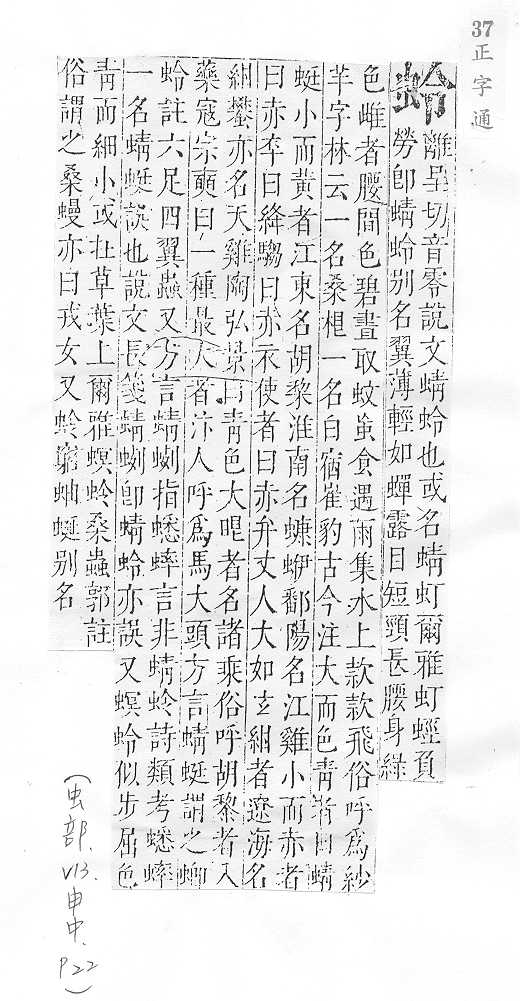 37
正字通
蛉
離呈切音零說文蜻蛉也或名蜻虰爾雅虰蛵負
勞卽蜻蛉別名翼薄輕如蟬露目短頸長腰身綠
色雌者腰間色碧晝取蚊虽食遇雨集水上款款飛俗呼爲紗
羊字林云一名桑桹一名白宿崔豹古今注大而色靑者曰蜻
蜓小而黃者江東名胡黎淮南名蠊蛜鄱陽名江雞小而赤者
曰赤卒曰絳騶曰赤衣使者曰赤弁丈人大如玄紺者遼海名
紺蠜亦名天雞陶弘景曰靑色大眼者名諸乘俗呼胡黎者入
藥寇宗奭曰一種最大者汴人呼爲馬大頭方言蜻蜓謂之蝍
蛉註六足四翼蟲又方言蜻蛚指蟋蟀言非蜻蛉詩類考蟋蟀
一名蜻蜓誤也說文長箋蜻蛚卽蜻蛉亦誤又螟蛉似步屈色
靑而細小或在草葉上爾雅螟蛉桑蟲郭註
俗謂之桑蟃亦曰戎女又蛉窮蚰蜒別名
(虫部、V13.申中、P22)